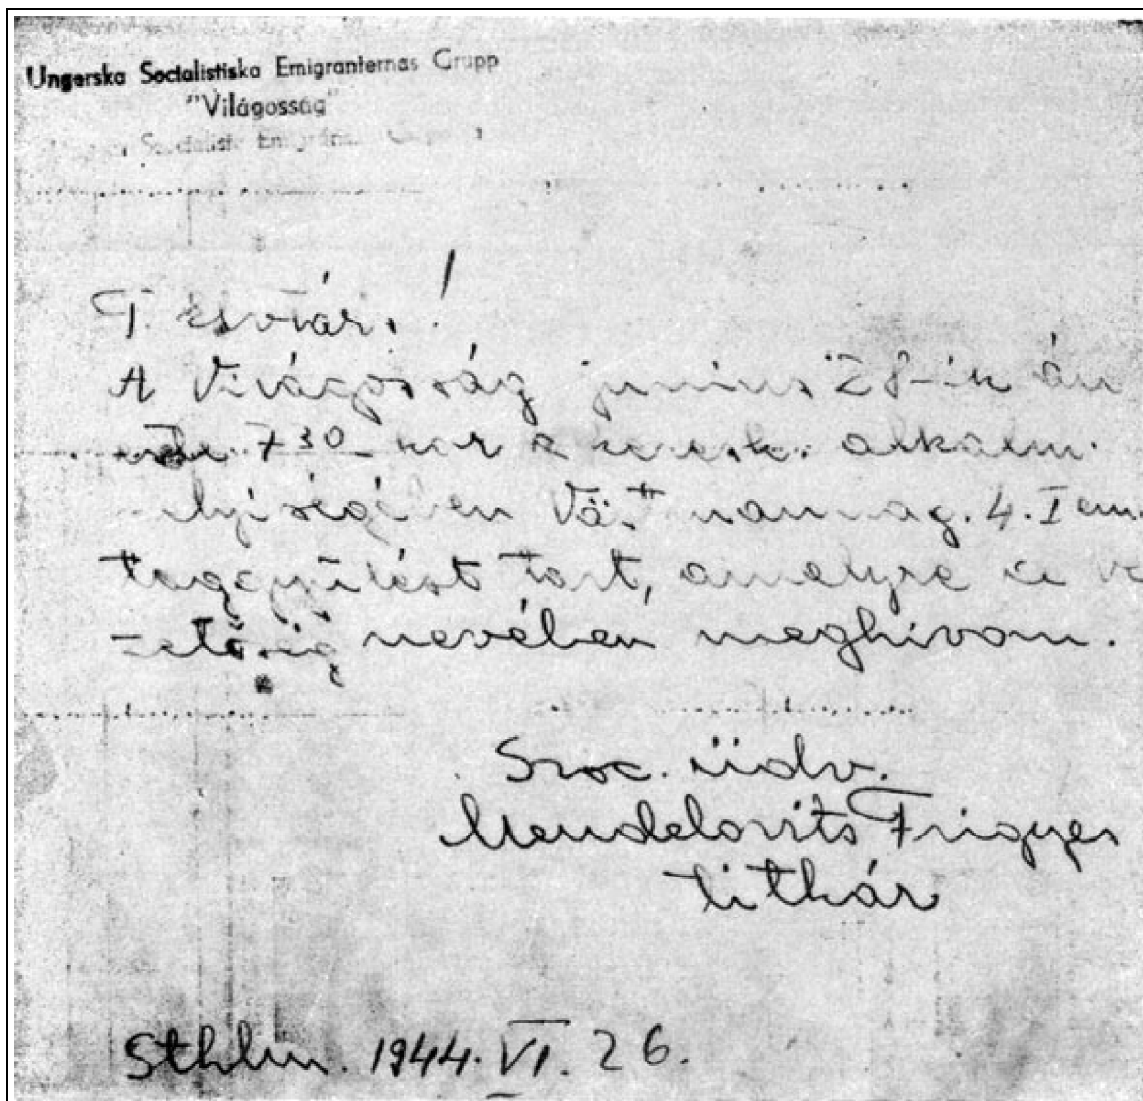 Ungerska Socialistiska Emigranternas Grupp
"Világosság"
Socialista Emigráns
T. elvtárs!
A Világosság junius 28-ik án
este 7 30 kor a keresk. alkalm.
helyiségében Västmannag. 4. I em.
taggyülést tart, amelyre a ve
zetőség nevében meghívom.
Szoc. üdv.
Mendelovits Frigyes
titkár
Sthlm. 1944. VI. 26.